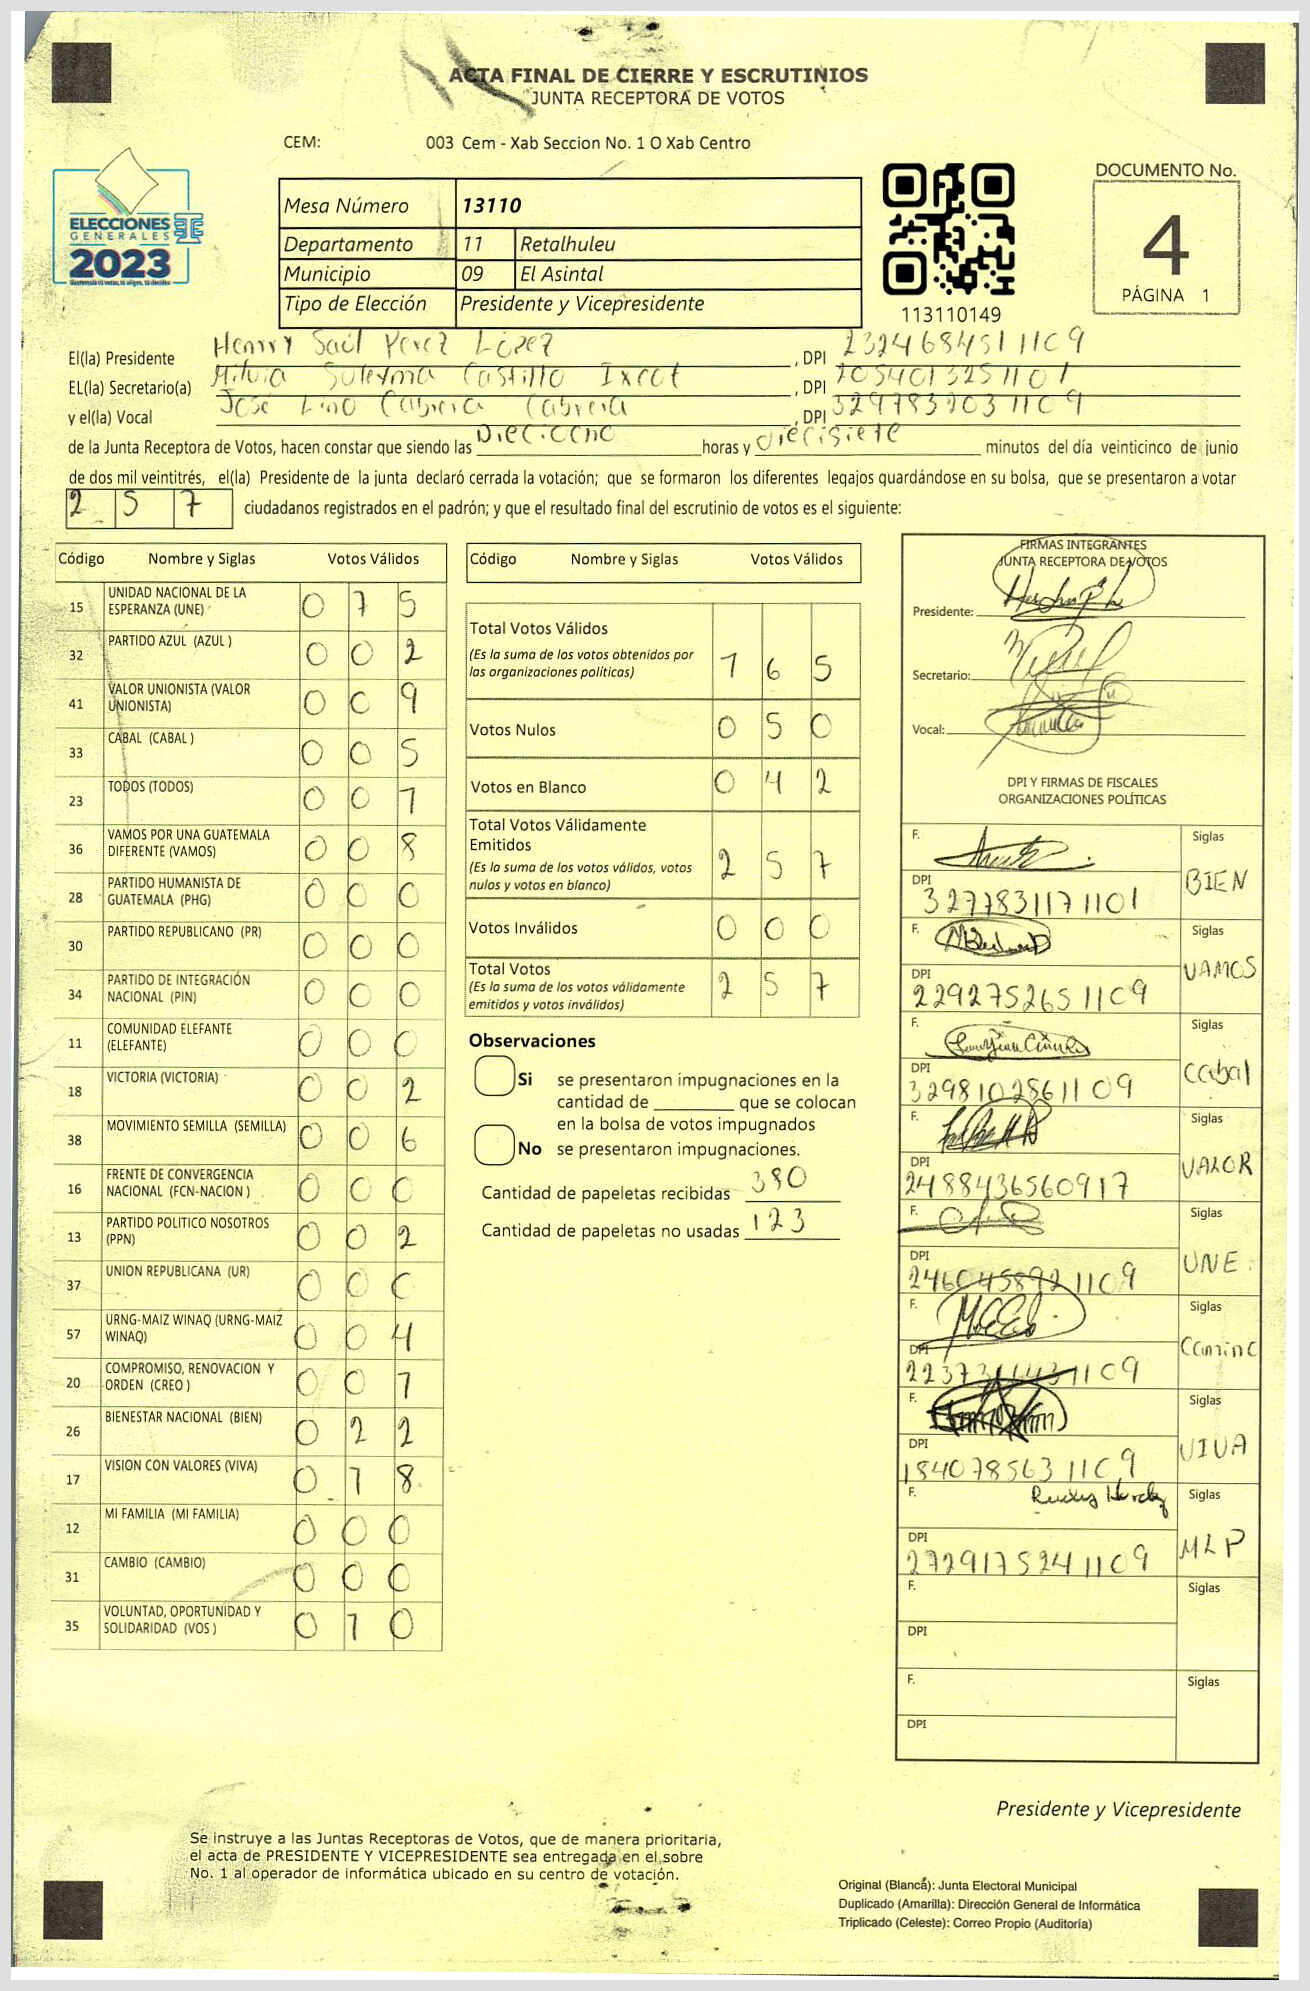 ACTA FINAL DE CIERRE Y ESCRUTINIOS
JUNTA RECEPTORA DE VOTOS
CEM: 003 Cem - Xab Seccion No. 1 O Xab Centro
ELECCIONES
GENERALES
2023
Mesa Número 13110
Departamento 11 Retalhuleu
Municipio 09 El Asintal
Tipo de Elección Presidente y Vicepresidente
113110149
DOCUMENTO No.
4
PÁGINA 1
El(la) Presidente Henry Saúl Perez López , DPI 2324684511109
EL(la) Secretario(a) Suleyma Castillo Ixcot , DPI 2054013251101
y el(la) Vocal José Lino Cabrera Cabrera , DPI 3297832031109
de la Junta Receptora de Votos, hacen constar que siendo las Dieciocho horas y diecisiete minutos del día veinticinco de junio
de dos mil veintitrés, el(la) Presidente de la junta declaró cerrada la votación; que se formaron los diferentes legajos guardándose en su bolsa, que se presentaron a votar
2 5 7 ciudadanos registrados en el padrón; y que el resultado final del escrutinio de votos es el siguiente:
Código Nombre y Siglas Votos Válidos
15 UNIDAD NACIONAL DE LA ESPERANZA (UNE) 0 7 5
32 PARTIDO AZUL (AZUL ) 0 0 2
41 VALOR UNIONISTA (VALOR UNIONISTA) 0 0 9
33 CABAL (CABAL ) 0 0 5
23 TODOS (TODOS) 0 0 1
36 VAMOS POR UNA GUATEMALA DIFERENTE (VAMOS) 0 0 8
28 PARTIDO HUMANISTA DE GUATEMALA (PHG) 0 0 0
30 PARTIDO REPUBLICANO (PR) 0 0 0
34 PARTIDO DE INTEGRACIÓN NACIONAL (PIN) 0 0 0
11 COMUNIDAD ELEFANTE (ELEFANTE) 0 0 0
18 VICTORIA (VICTORIA) 0 0 2
38 MOVIMIENTO SEMILLA (SEMILLA) 0 0 6
16 FRENTE DE CONVERGENCIA NACIONAL (FCN-NACION ) 0 0 0
13 PARTIDO POLITICO NOSOTROS (PPN) 0 0 2
37 UNION REPUBLICANA (UR) 0 0 0
57 URNG-MAIZ WINAQ (URNG-MAIZ WINAQ) 0 0 4
20 COMPROMISO, RENOVACION Y ORDEN (CREO ) 0 0 1
26 BIENESTAR NACIONAL (BIEN) 0 2 2
17 VISION CON VALORES (VIVA) 0 1 8
12 MI FAMILIA (MI FAMILIA) 0 0 0
31 CAMBIO (CAMBIO) 0 0 0
35 VOLUNTAD, OPORTUNIDAD Y SOLIDARIDAD (VOS ) 0 1 0
Código Nombre y Siglas Votos Válidos
Total Votos Válidos 1 6 5
(Es la suma de los votos obtenidos por
las organizaciones políticas)
Votos Nulos 0 5 0
Votos en Blanco 0 4 2
Total Votos Válidamente
Emitidos 2 5 7
(Es la suma de los votos válidos, votos
nulos y votos en blanco)
Votos Inválidos 0 0 0
Total Votos 2 5 7
(Es la suma de los votos válidamente
emitidos y votos inválidos)
Observaciones
Si se presentaron impugnaciones en la
cantidad de ________ que se colocan
en la bolsa de votos impugnados
No se presentaron impugnaciones.
Cantidad de papeletas recibidas 380
Cantidad de papeletas no usadas 123
FIRMAS INTEGRANTES
JUNTA RECEPTORA DE VOTOS
Presidente:
Secretario:
Vocal:
DPI Y FIRMAS DE FISCALES
ORGANIZACIONES POLÍTICAS
F. Siglas
DPI BIEN
3277831171101
F. Siglas
DPI VAMOS
2292752651109
F. Siglas
DPI Cabal
3298102861109
F. Siglas
DPI VALOR
2488436560917
F. Siglas
DPI UNE
2460458921109
F. Siglas
DPI Camino
F. Siglas
DPI VIVA
1840785631109
F. Siglas
DPI MLP
2729175241109
F. Siglas
DPI
F. Siglas
DPI
Presidente y Vicepresidente
Se instruye a las Juntas Receptoras de Votos, que de manera prioritaria,
el acta de PRESIDENTE Y VICEPRESIDENTE sea entregada en el sobre
No. 1 al operador de informática ubicado en su centro de votación.
Original (Blanca): Junta Electoral Municipal
Duplicado (Amarilla): Dirección General de Informática
Triplicado (Celeste): Correo Propio (Auditoría)